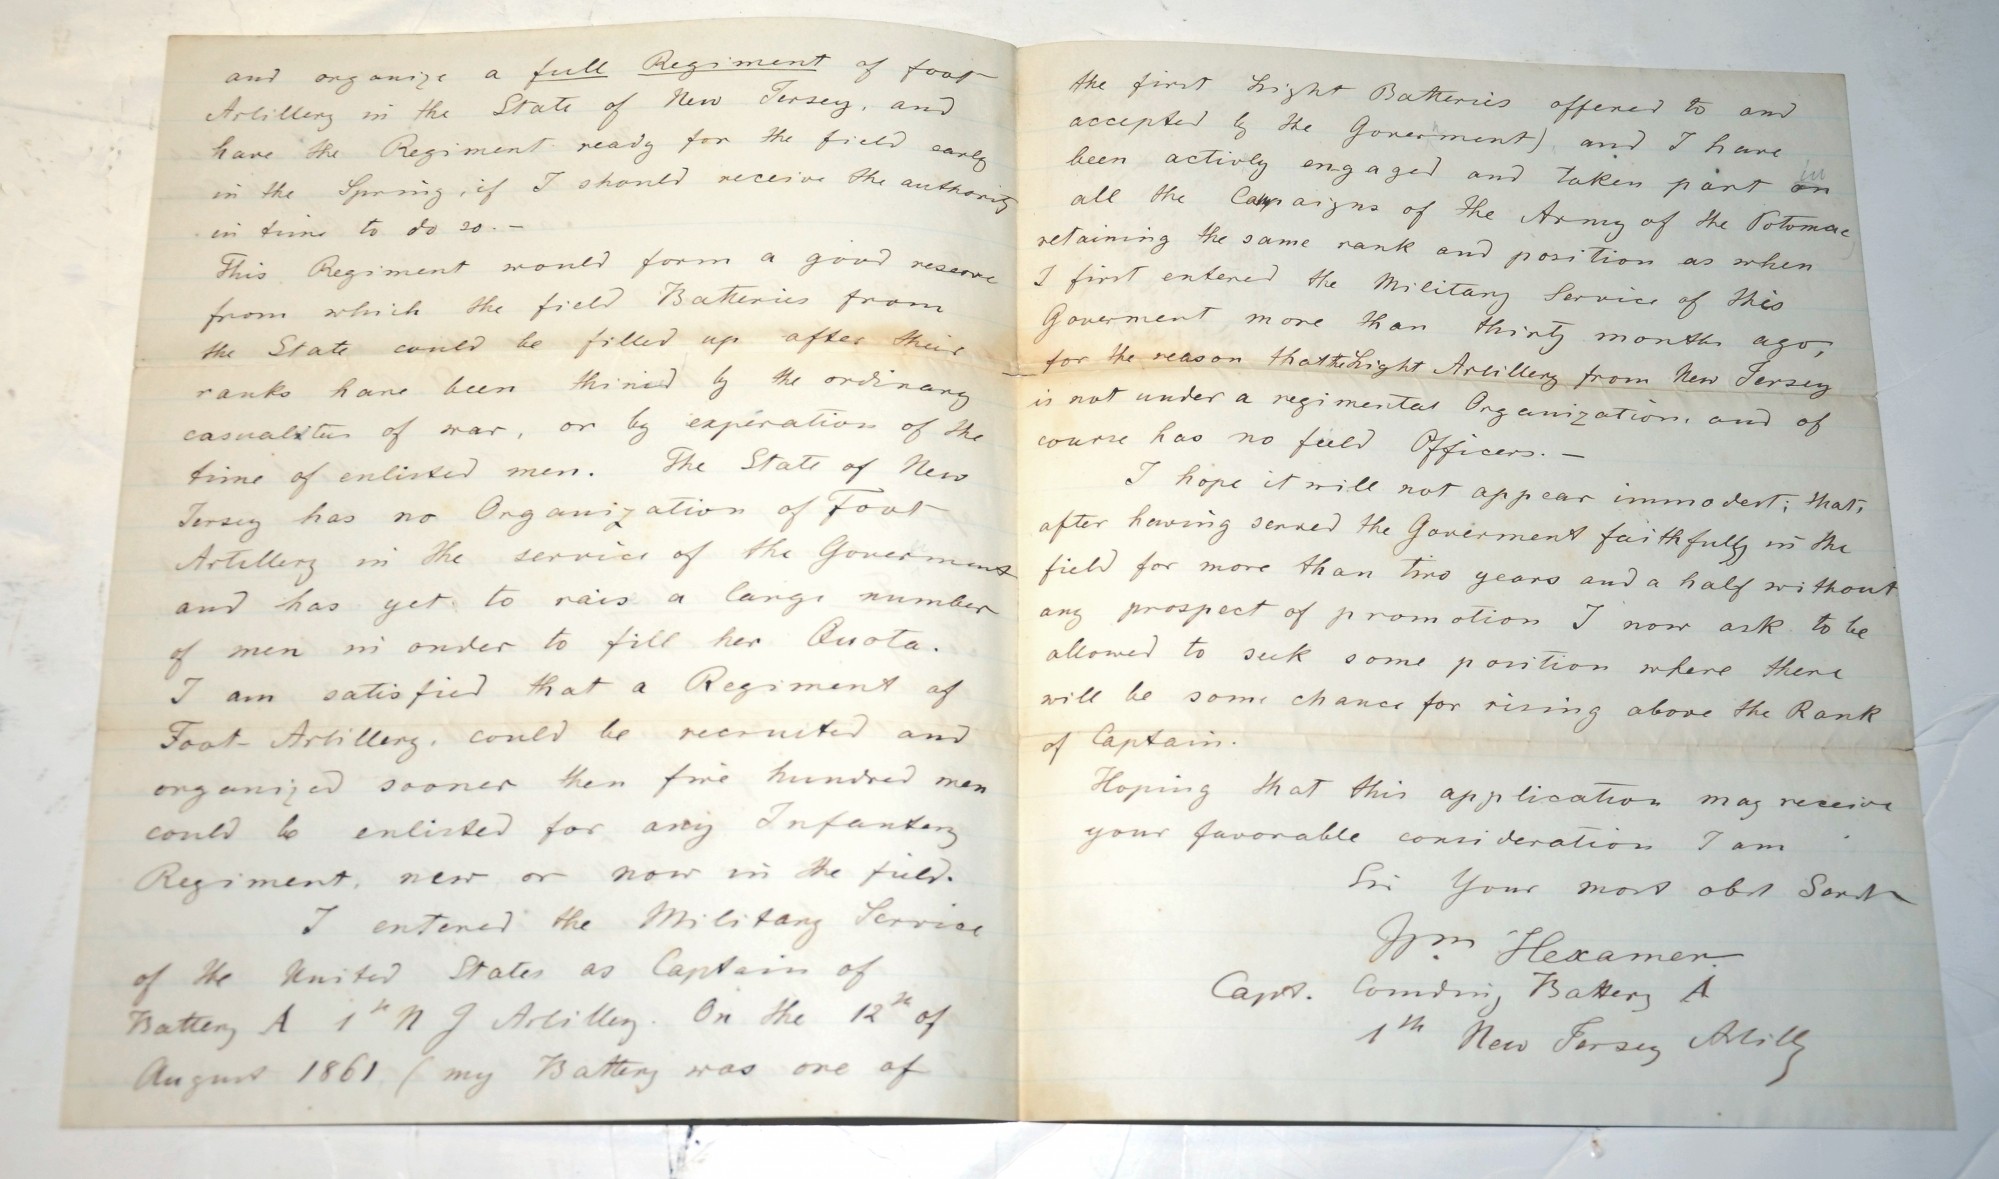 and organize a full Regiment of foot
Artillery in the State of New Jersey, and
have the Regiment ready for the field early
in the Spring, if I should receive the authority
in time to do so. —
This Regiment would form a good reserve
from which the field Batteries from
the State could be filled up after their
ranks have been thinid by the ordinary
casualties of war, or by experation of the
time of enlisted men. The State of New
Jersey has no Organization of Foot
Artillery in the service of the Goverment
and has yet to rais a large number
of men in order to fill her Quota.
I am satisfied that a Regiment of
Foot-Artillery, could be recruited and
organized sooner then five hundred men
could be enlisted for any Infantery
Regiment, new or now in the field.
I entered the Military Service
of the United States as Captain of
Battery A 1st N J Artillery. On the 12th of
August 1861 (my Battery was one of
the first Light Batteries offered to and
accepted by the Goverment) and I have
been activly engaged and taken part in
all the Campaigns of the Army of the Potomac
retaining the same rank and position as when
I first entered the Military Service of this
Goverment more than thirty months ago,
for the reason that the Light Artillery from New Jersey
is not under a regimental Organization, and of
course has no field Officers. —
I hope it will not appear immodest; that;
after having served the Goverment faithfully in the
field for more than two years and a half without
any prospect of promotion I now ask to be
allowed to seek some position where there
will be some chance for rising above the Rank
of Captain.
Hoping that this application may receive
your favorable consideration I am
Sir Your most obt Servt
Wm Hexamer
Capt. Comding Battery A
1th New Jersey Artilly